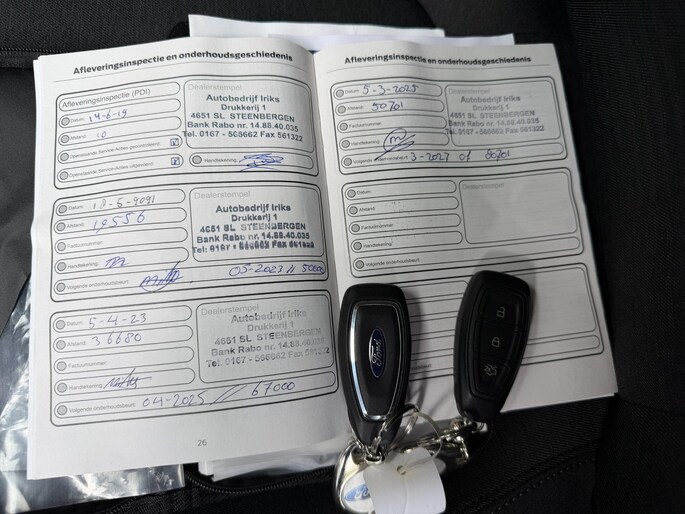 Afleveringsinspectie en onderhoudsgeschiedenis
Afleveringsinspectie (PDI)
Datum: 14-6-19
Afstand: 10
Openstaande Service Acties gecontroleerd
Openstaande Service Acties uitgevoerd
Dealerstempel
Autobedrijf Iriks
Drukkerij 1
4651 SL STEENBERGEN
Bank Rabo nr. 14.88.40.035
Tel. 0167 - 566662 Fax 561322
Handtekening:
Datum:
Afstand: 19556
Factuurnummer:
Handtekening:
Volgende onderhoudsbeurt: 05-2023 // 50000
Dealerstempel
Autobedrijf Iriks
Drukkerij 1
4651 SL STEENBERGEN
Bank Rabo nr. 14.88.40.035
Datum: 5-4-23
Afstand: 36680
Factuurnummer:
Handtekening:
Volgende onderhoudsbeurt: 04-2025 // 67000
Dealerstempel
Autobedrijf Iriks
Drukkerij 1
4651 SL STEENBERGEN
Bank Rabo nr. 14.88.40.035
Tel. 0167 - 566662 Fax 561322
26
Afleveringsinspectie en onderhoudsgeschiedenis
Datum: 5-3-2025
Afstand: 50701
Factuurnummer:
Handtekening:
Volgende onderhoudsbeurt: 3-2027 of 80701
Dealerstempel
Autobedrijf Iriks
Drukkerij 1
4651 SL STEENBERGEN
Bank Rabo nr. 14.88.40.035
Tel. 0167 - 566662 Fax 561322
Datum:
Afstand:
Factuurnummer:
Handtekening:
Volgende onderhoudsbeurt:
Dealerstempel
Ford